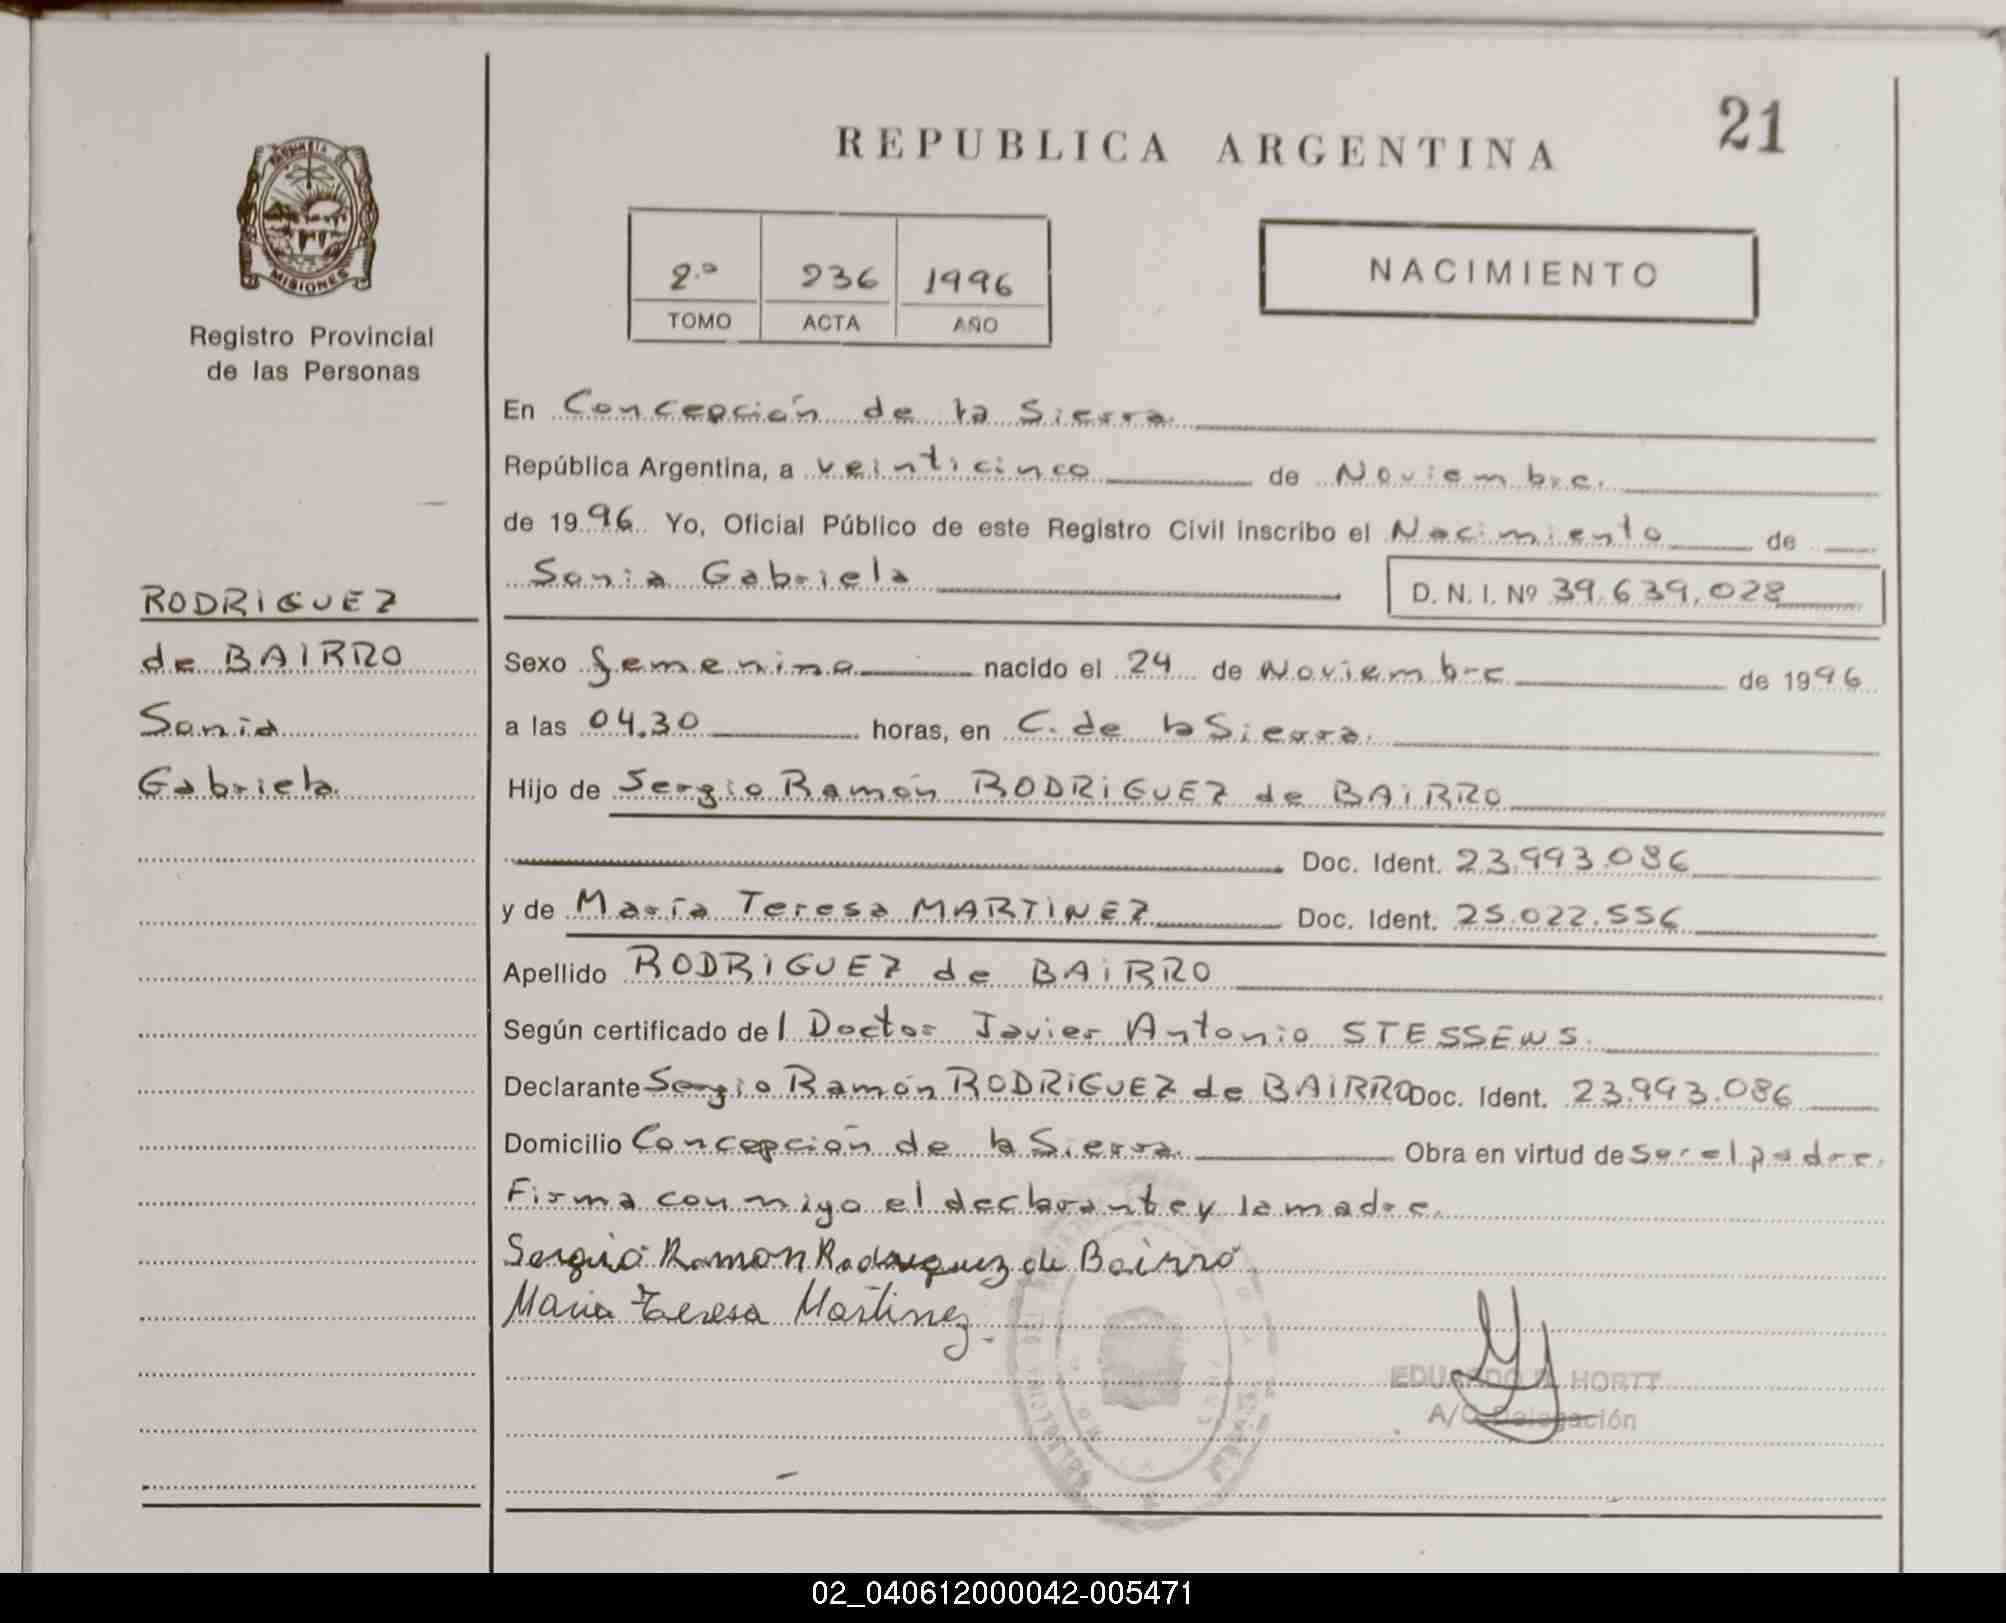 21
REPUBLICA ARGENTINA
MISIONES
2.º 236 1996
TOMO ACTA AÑO
NACIMIENTO
Registro Provincial
de las Personas
En Concepción de la Sierra.
República Argentina, a veinticinco de Noviembre.
de 1996. Yo, Oficial Público de este Registro Civil inscribo el Nacimiento de
Sonia Gabriela D. N. I. Nº 39.639.028
RODRIGUEZ
de BAIRRO
Sonia
Gabriela.
Sexo femenino nacido el 24 de Noviembre de 1996
a las 04.30 horas, en C. de la Sierra.
Hijo de Sergio Ramón RODRIGUEZ de BAIRRO
Doc. Ident. 23.993.086
y de María Teresa MARTINEZ Doc. Ident. 25.022.556
Apellido RODRIGUEZ de BAIRRO
Según certificado del Doctor Javier Antonio STESSENS.
Declarante Sergio Ramón RODRIGUEZ de BAIRRO Doc. Ident. 23.993.086
Domicilio Concepción de la Sierra. Obra en virtud de ser el padre.
Firma conmigo el declarante y la madre.
Sergio Ramon Rodriguez de Bairro
Maria Teresa Martinez.
EDUARDO HORTT
A/C Delegación
02_040612000042-005471